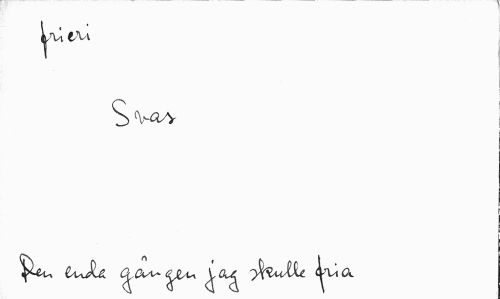 frieri
Svas
Den enda gången jag skulle fria